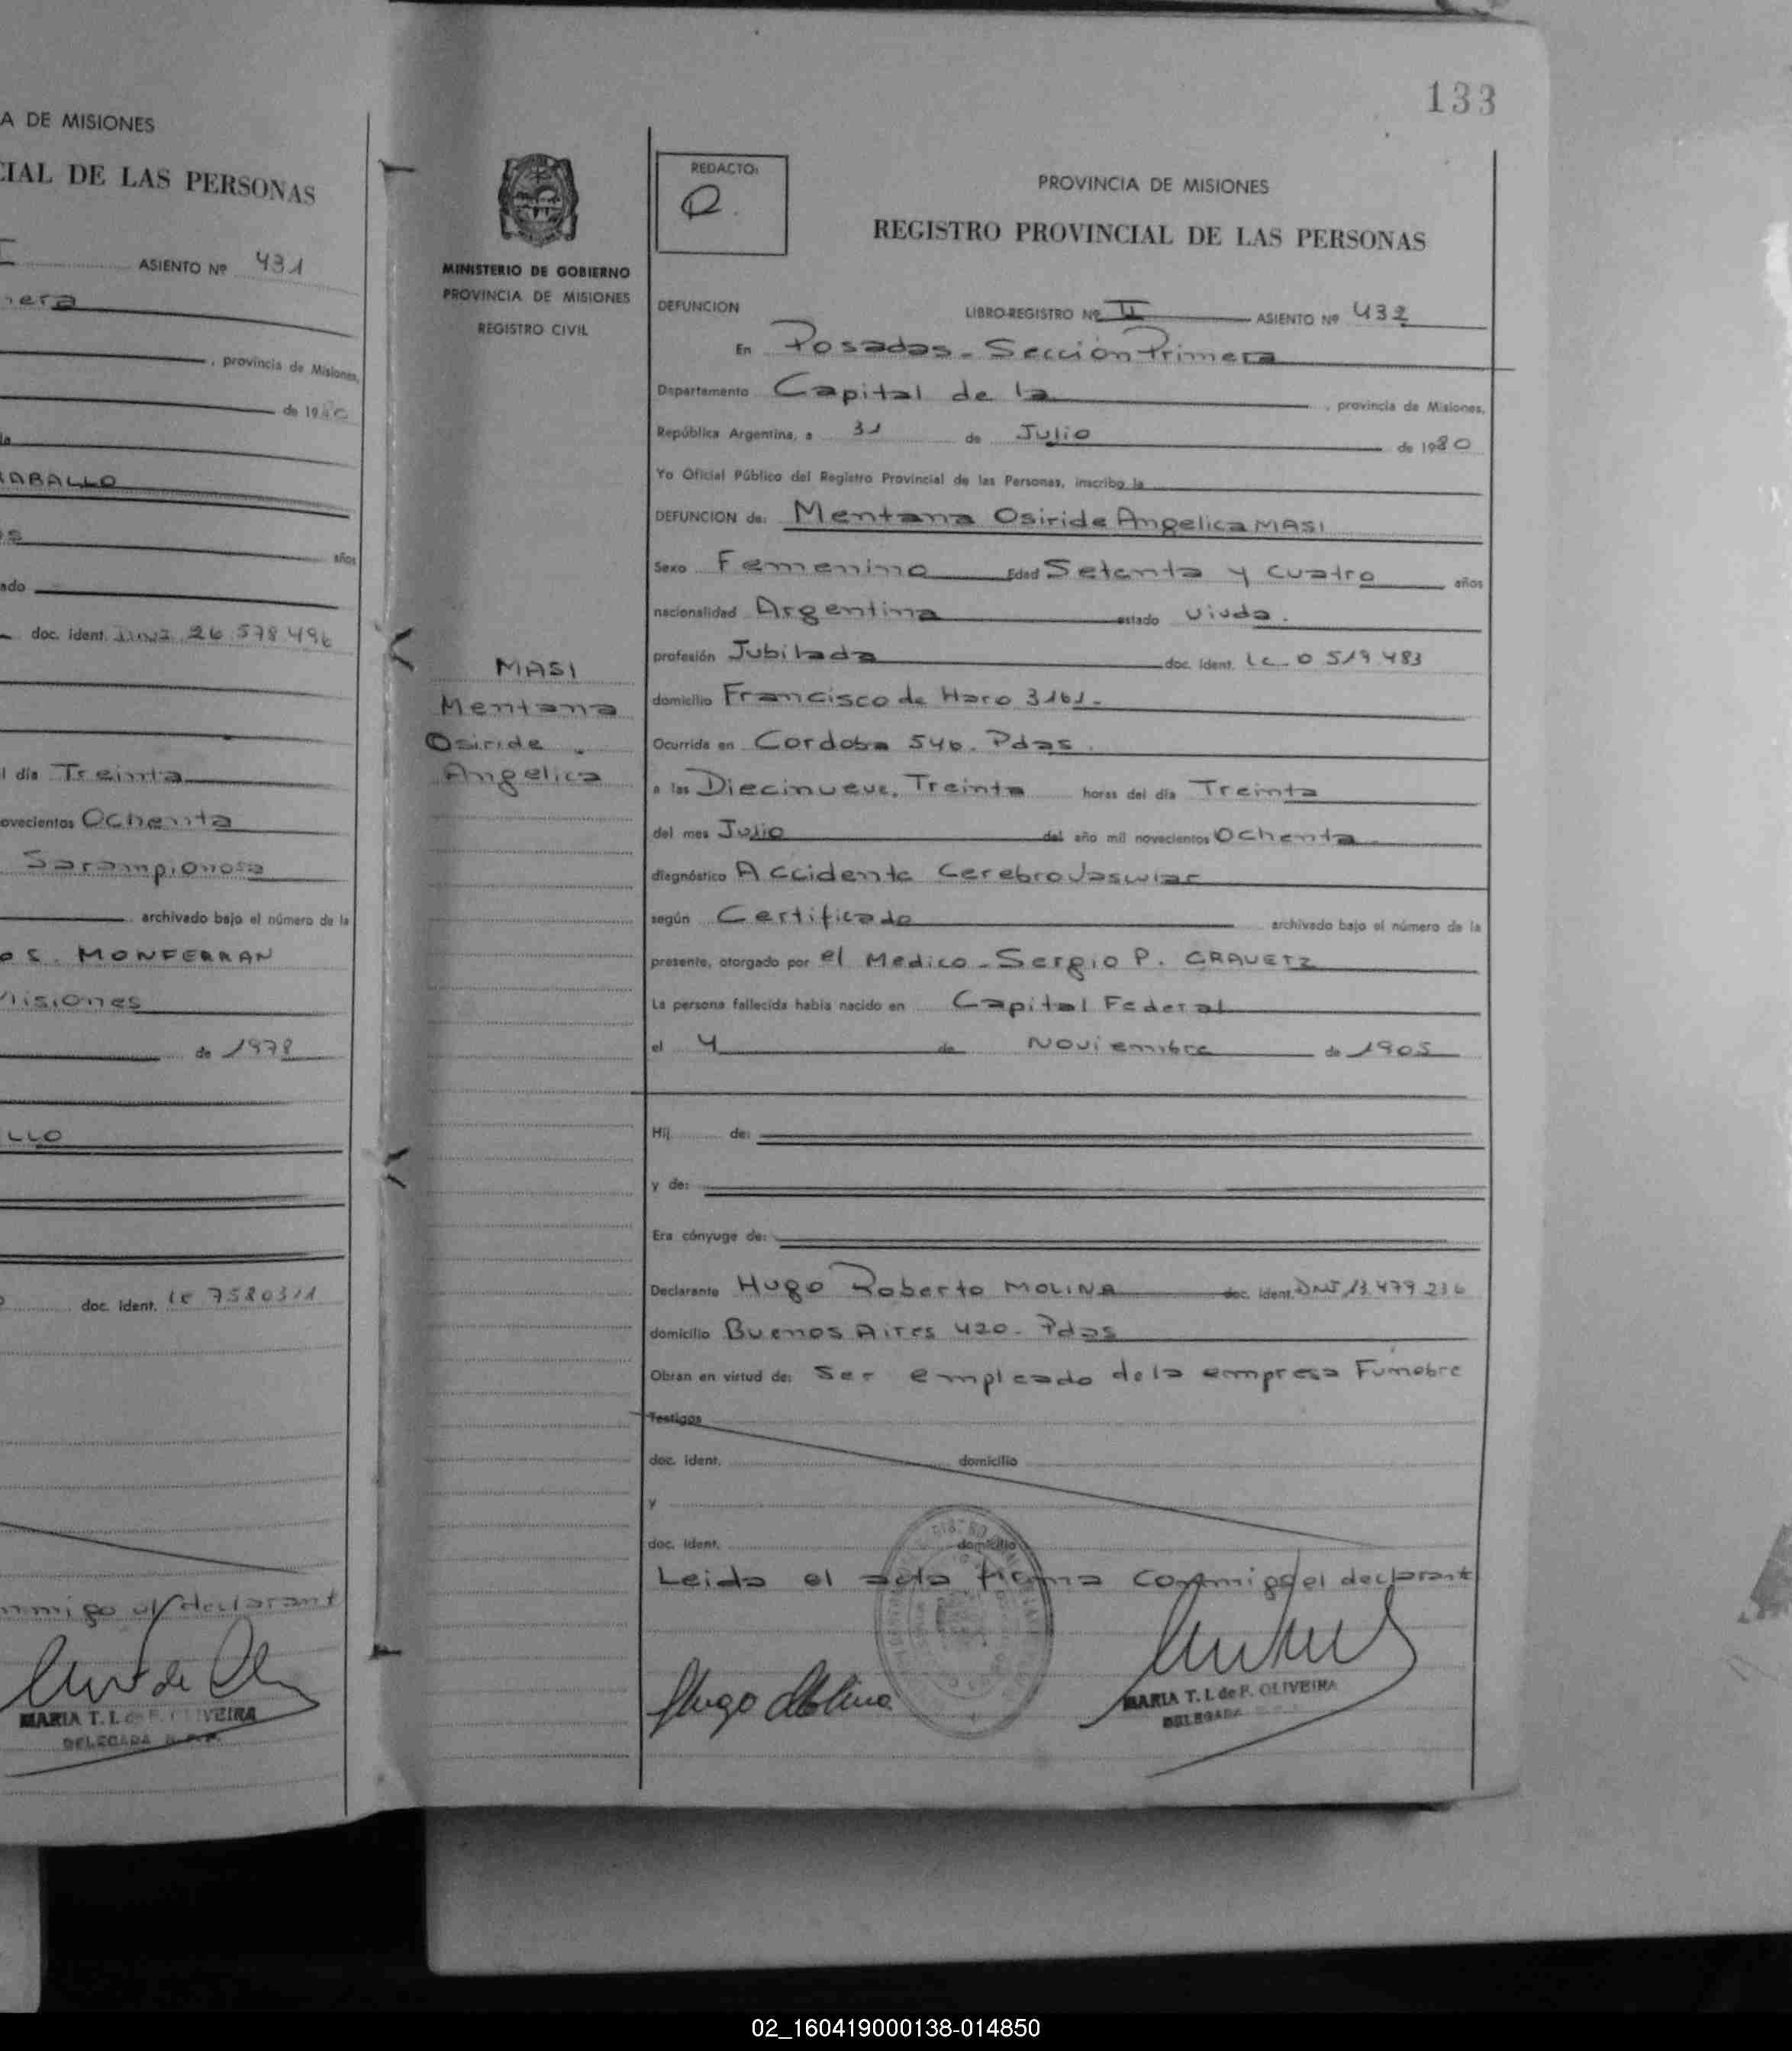 A DE MISIONES
CIAL DE LAS PERSONAS
ASIENTO Nº 431
mera
, provincia de Misiones,
de 1980
la
CARABALLO
os
años
ado
doc. ident. 26.578.496
l día Treinta
ovecientos Ochenta
Sarampionosa
archivado bajo el número de la
o S. MONFERRAN
Misiones
de 1978
LLO
doc. ident. LE 7580311
onmigo el declarant
MARIA T. I. de F. OLIVEIRA
DELEGADA R. P. P.
133
MINISTERIO DE GOBIERNO
PROVINCIA DE MISIONES
REGISTRO CIVIL
MASI
Mentana
Osiride
Angelica
REDACTO:
PROVINCIA DE MISIONES
REGISTRO PROVINCIAL DE LAS PERSONAS
DEFUNCION LIBRO-REGISTRO Nº II ASIENTO Nº 432
En Posadas - Sección Primera
Departamento Capital de la , provincia de Misiones,
República Argentina, a 31 de Julio de 1980
Yo Oficial Público del Registro Provincial de las Personas, inscribo la
DEFUNCION de: Mentana Osiride Angelica MASI
Sexo Femenino Edad Setenta y cuatro años
nacionalidad Argentina estado Viuda.
profesión Jubilada doc. ident. LC - 0 519 483
domicilio Francisco de Haro 3161.-
Ocurrida en Cordoba 546. Pdas.
a las Diecinueve, Treinta horas del día Treinta
del mes Julio del año mil novecientos Ochenta
diagnóstico Accidente Cerebrovascular
según Certificado archivado bajo el número de la
presente, otorgado por el Medico - Sergio P. CRAVETZ
La persona fallecida había nacido en Capital Federal
el 4 de Noviembre de 1905
Hij de:
y de:
Era cónyuge de:
Declarante Hugo Roberto MOLINA doc. ident. DNI 13.479.236
domicilio Buenos Aires 420. Pdas
Obran en virtud de: Ser empleado de la empresa Funebre
Testigos
doc. ident. domicilio
y
doc. ident. domicilio
Leida el acta firma conmigo el declarant
Hugo Molina
MARIA T. I. de F. OLIVEIRA
DELEGADA
02_160419000138-014850